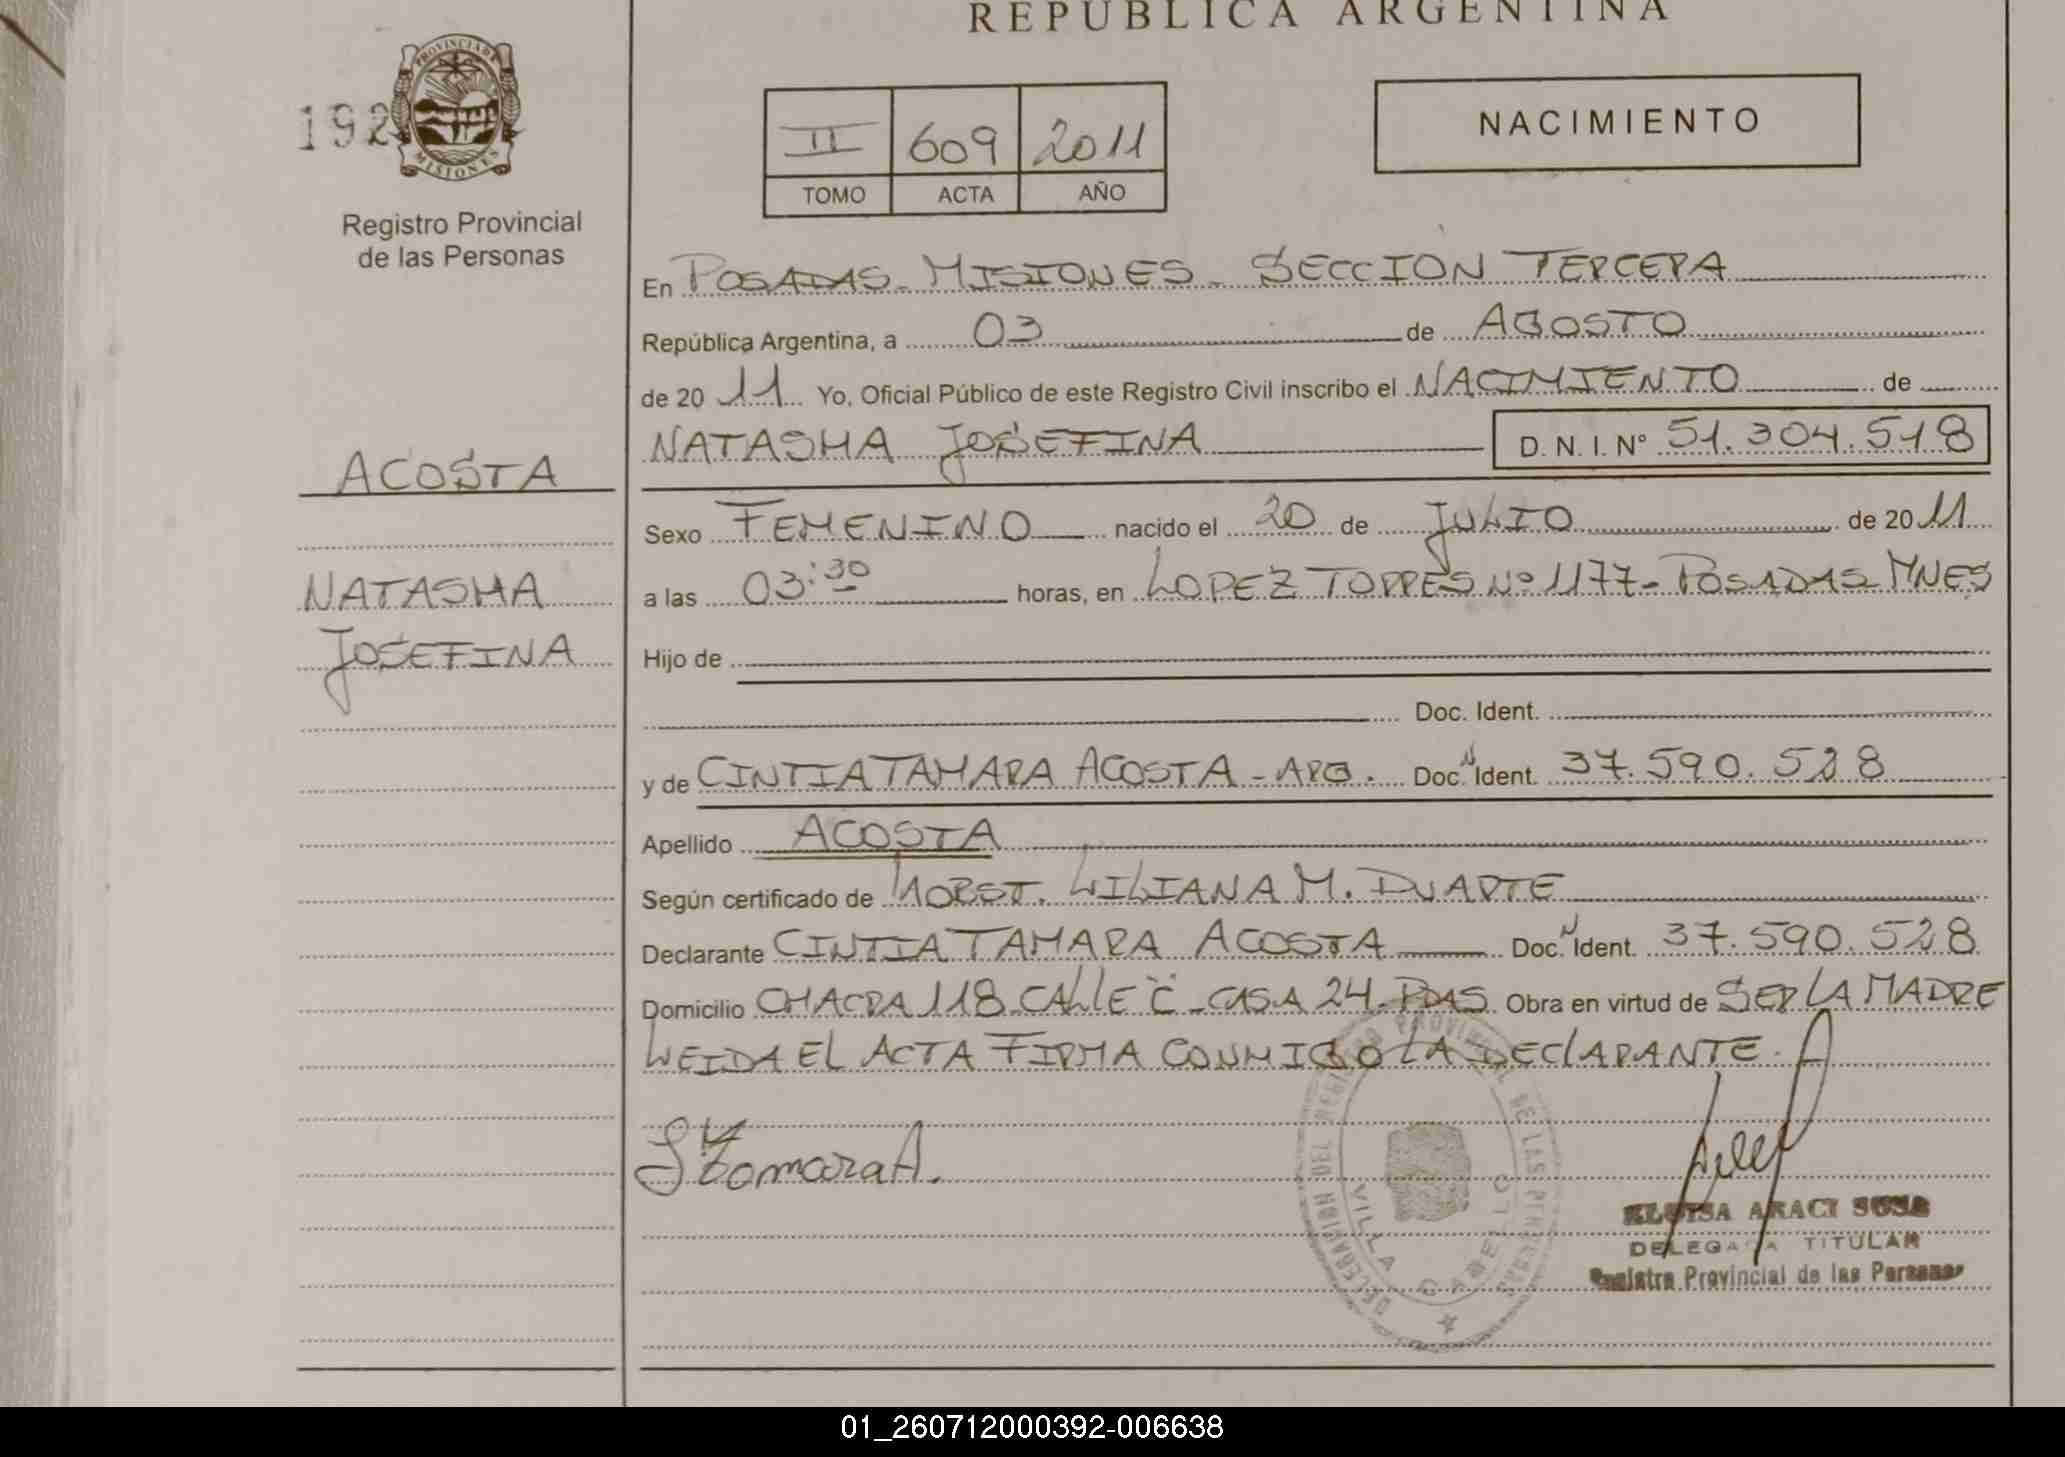 REPUBLICA ARGENTINA
192
PROVINCIA DE
MISIONES
Registro Provincial
de las Personas
II 609 2011
TOMO ACTA AÑO
NACIMIENTO
En POSADAS - MISIONES - SECCION TERCERA
República Argentina, a 03 de AGOSTO
de 20 11 Yo, Oficial Público de este Registro Civil inscribo el NACIMIENTO de
NATASHA JOSEFINA D.N.I. Nº 51.304.518
ACOSTA
Sexo FEMENINO nacido el 20 de JULIO de 20 11
NATASHA
a las 03:30 horas, en LOPEZ TORRES Nº 1177 - POSADAS MNES
JOSEFINA
Hijo de
Doc. Ident.
y de CINTIA TAMARA ACOSTA - ARG. Doc. N Ident. 37.590.528
Apellido ACOSTA
Según certificado de OBST. LILIANA M. DUARTE
Declarante CINTIA TAMARA ACOSTA Doc. N Ident. 37.590.528
Domicilio CHACRA 118 - CALLE "C" - CASA 24 - PDAS. Obra en virtud de SER LA MADRE
LEIDA EL ACTA FIRMA CONMIGO LA DECLARANTE.
DELEGACION DEL REGISTRO PROVINCIAL DE LAS PERSONAS
VILLA CABELLO
DELEGADA TITULAR
Registro Provincial de las Personas
01_260712000392-006638